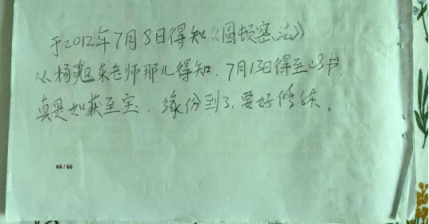 于2012年7月8日得知《圆顿密法》
从杨 东老师那儿得知.7月13日得到此书
真是如获至宝.缘份到了.要好修炼。
66/66